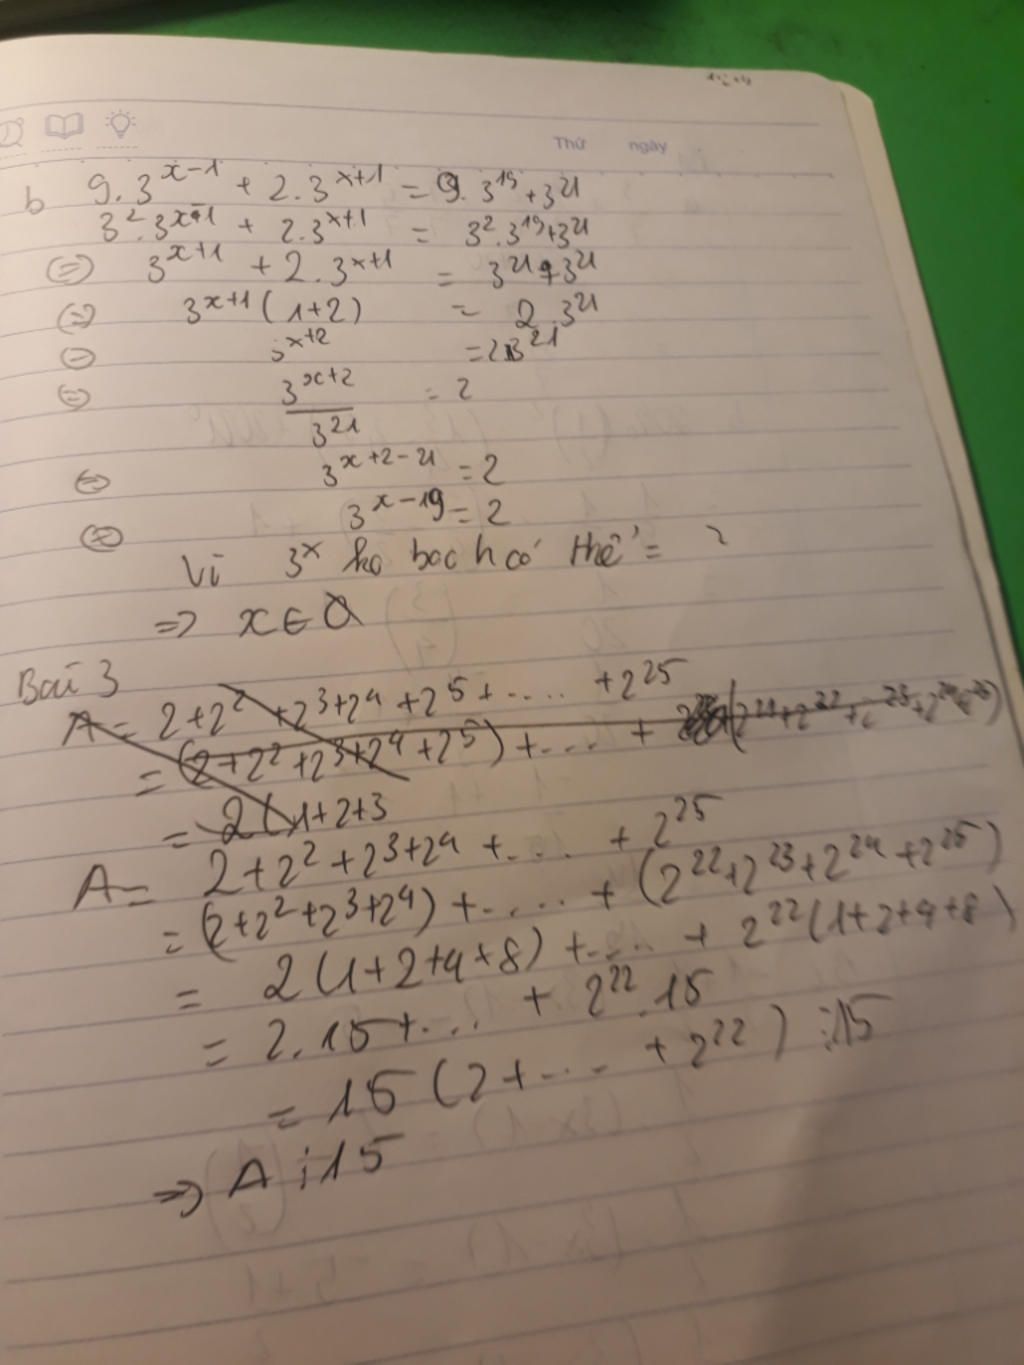 Thứ ngày
b 9.3^{x-1} + 2.3^{x+1} = 9.3^{19}+3^{21}
3^2.3^{x-1} + 2.3^{x+1} = 3^2.3^{19}+3^{21}
(=) 3^{x+1} + 2.3^{x+1} = 3^{21}+3^{21}
(=) 3^{x+1}(1+2) = 2.3^{21}
(=) 3^{x+2} = 2.3^{21}
(=) \frac{3^{x+2}}{3^{21}} = 2
(=) 3^{x+2-21} = 2
(=) 3^{x-19} = 2
Vì 3^x ko bao h có thể = 2
=> x ∈ Q
Bài 3
A = 2+2^2+2^3+2^4+2^5+.... +2^{25}
= (2+2^2+2^3+2^4+2^5)+... + (2^{21}+2^{22}+2^{23}+2^{24}+2^{25})
= 2(1+2+3
A= 2+2^2+2^3+2^4 +.... + 2^{25}
= (2+2^2+2^3+2^4)+..... + (2^{22}+2^{23}+2^{24}+2^{25})
= 2(1+2+4+8)+.... + 2^{22}(1+2+4+8)
= 2.15+... + 2^{22}.15
= 15(2+... + 2^{22}) ⋮15
=> A ⋮15